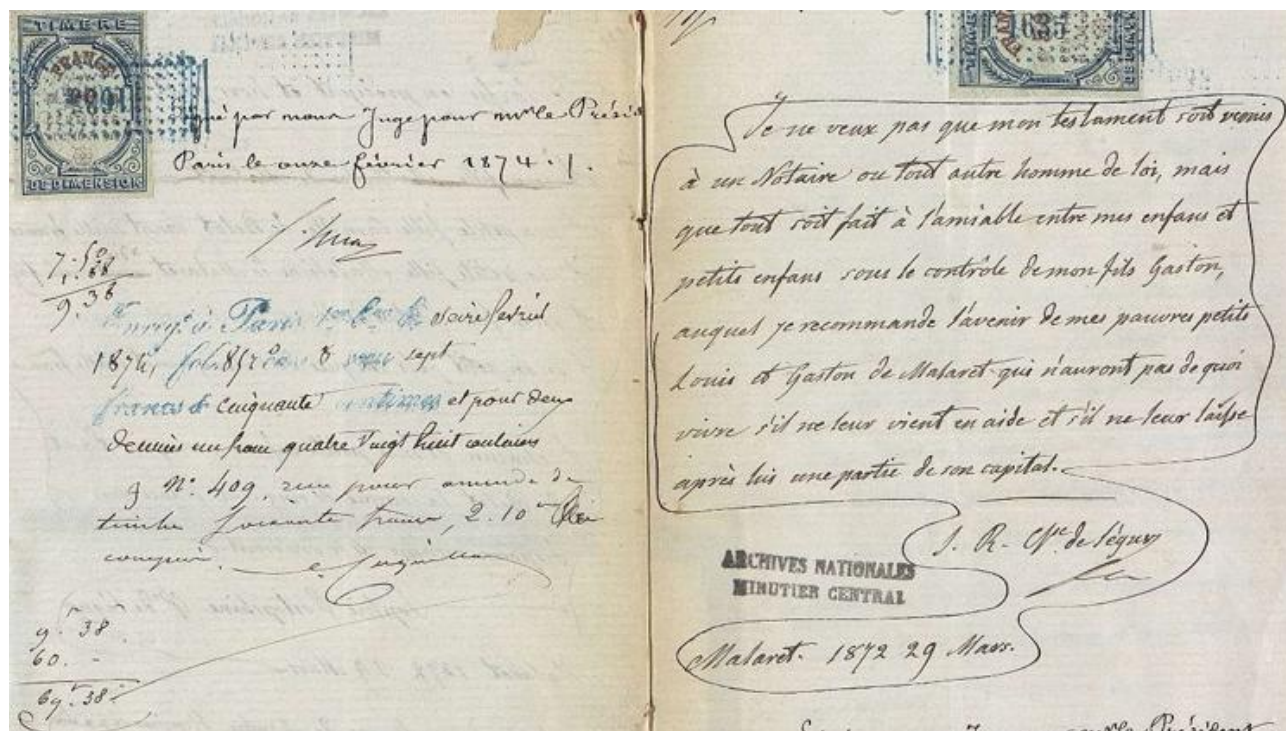 TIMBRE
FRANCS
DE DIMENSION
par nous Juge pour mr le Présid
Paris le onze février 1874 ./.
7. 50
1. 88
9. 38
à Paris seize février
1874, sept
francs cinquante centimes et pour deux
décimes un franc quatre vingt huit centimes
No. 409, reçu pour amende de
timbre soixante francs, 2. 10es
compris.
9. 38
60. -
69. 38
1635
FRANC
DE DIMENSION
Je ne veux pas que mon testament soit remis
à un Notaire ou tout autre homme de loi, mais
que tout soit fait à l'amiable entre mes enfans et
petits enfans sous le contrôle de mon fils Gaston,
auquel je recommande l'avenir de mes pauvres petits
Louis et Gaston de Malaret qui n'auront pas de quoi
vivre s'il ne leur vient en aide et s'il ne leur laisse
après lui une partie de son capital.
S. R. Csse de Ségur
ARCHIVES NATIONALES
MINUTIER CENTRAL
Malaret. 1872 29 Mars.
mr le Président